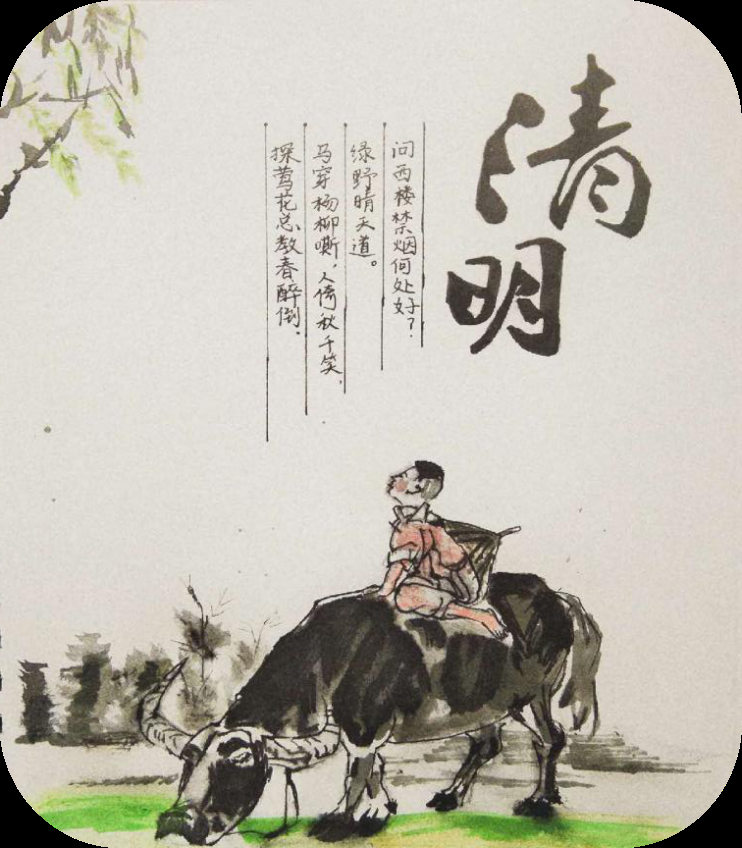 清明
问西楼禁烟何处好？
绿野晴天道。
马穿杨柳嘶，人倚秋千笑，
探莺花总教春醉倒。